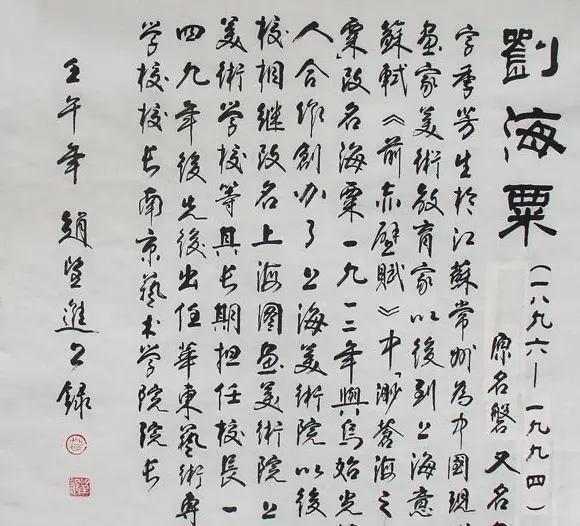 劉海粟
(一八九六—一九九四)
原名磐又名
字季芳生於江蘇常州為中國現
畫家美術教育家以後到上海意
蘇軾《前赤壁賦》中「渺蒼海之
粟」改名海粟一九一三年與烏始光
人合作創办了上海美術院以後
校相継改名上海图畫美術院上
美術学校等其长期担任校長一
四九年後先後出任華東藝術專
学校校长南京藝术学院院长
壬午年 趙望進錄